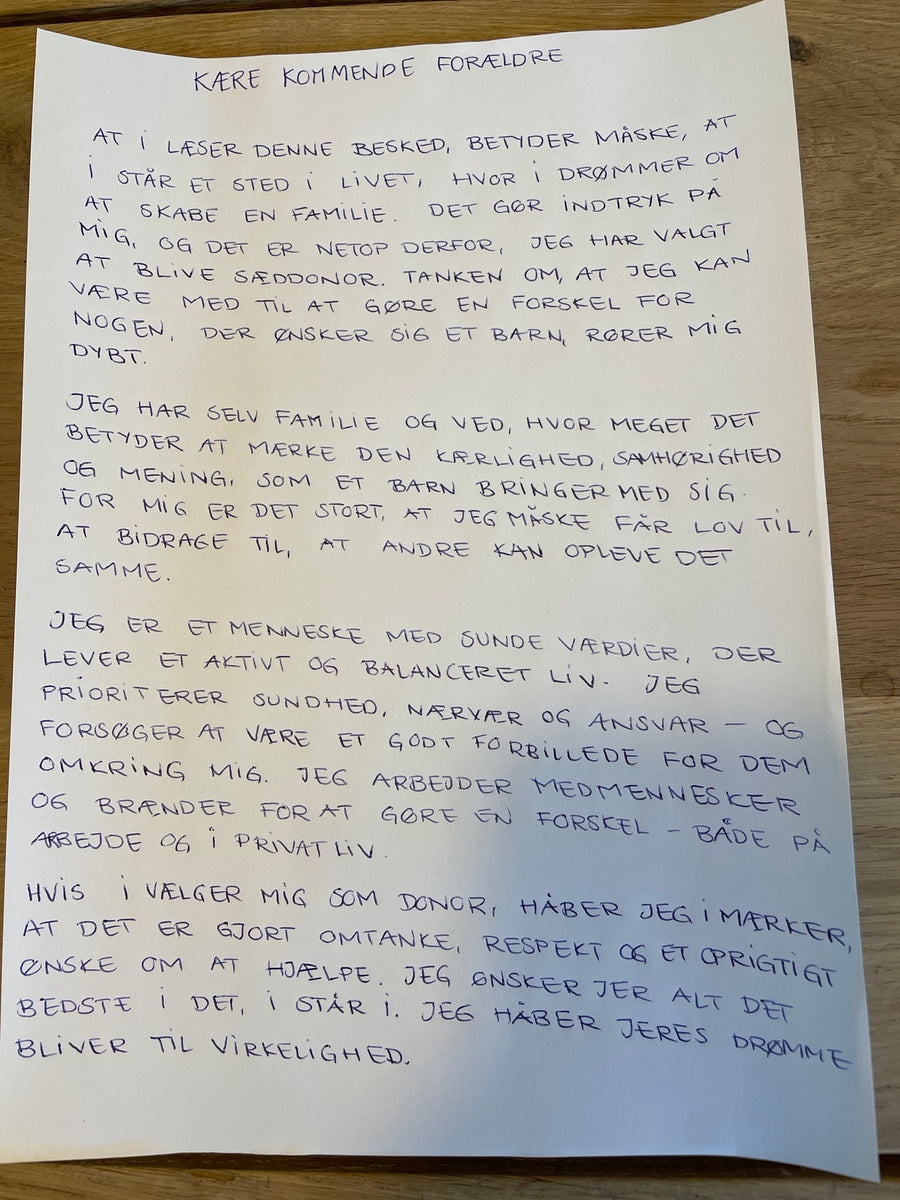 KÆRE KOMMENDE FORÆLDRE
AT I LÆSER DENNE BESKED, BETYDER MÅSKE, AT
I STÅR ET STED I LIVET, HVOR I DRØMMER OM
AT SKABE EN FAMILIE. DET GØR INDTRYK PÅ
MIG, OG DET ER NETOP DERFOR, JEG HAR VALGT
AT BLIVE SÆDDONOR. TANKEN OM, AT JEG KAN
VÆRE MED TIL AT GØRE EN FORSKEL FOR
NOGEN, DER ØNSKER SIG ET BARN, RØRER MIG
DYBT.
JEG HAR SELV FAMILIE OG VED, HVOR MEGET DET
BETYDER AT MÆRKE DEN KÆRLIGHED, SAMHØRIGHED
OG MENING, SOM ET BARN BRINGER MED SIG.
FOR MIG ER DET STORT, AT JEG MÅSKE FÅR LOV TIL,
AT BIDRAGE TIL, AT ANDRE KAN OPLEVE DET
SAMME.
JEG ER ET MENNESKE MED SUNDE VÆRDIER, DER
LEVER ET AKTIVT OG BALANCERET LIV. JEG
PRIORITERER SUNDHED, NÆRVÆR OG ANSVAR – OG
FORSØGER AT VÆRE ET GODT FORBILLEDE FOR DEM
OMKRING MIG. JEG ARBEJDER MED MENNESKER
OG BRÆNDER FOR AT GØRE EN FORSKEL – BÅDE PÅ
ARBEJDE OG I PRIVATLIV.
HVIS I VÆLGER MIG SOM DONOR, HÅBER JEG I MÆRKER,
AT DET ER GJORT OMTANKE, RESPEKT OG ET OPRIGTIGT
ØNSKE OM AT HJÆLPE. JEG ØNSKER JER ALT DET
BEDSTE I DET, I STÅR I. JEG HÅBER JERES DRØMME
BLIVER TIL VIRKELIGHED.